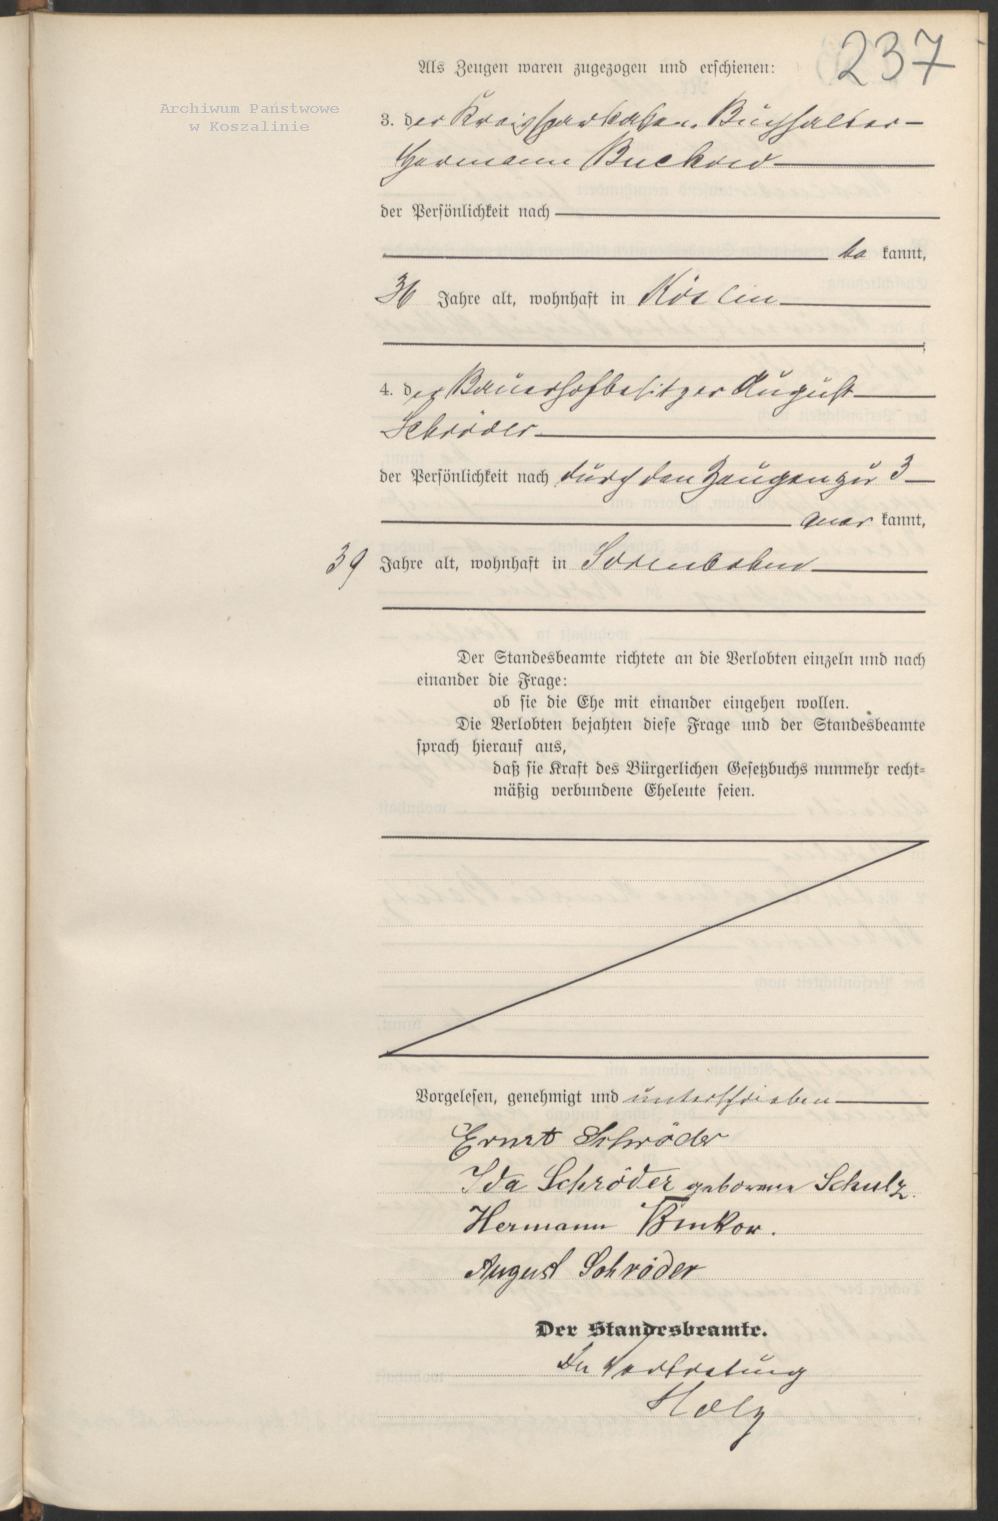 237
Als Zeugen waren zugezogen und erschienen:
Archiwum Państwowe
w Koszalinie
3. der Kreissparkassen-Buchhalter
Hermann Buckow
der Persönlichkeit nach
be kannt,
36 Jahre alt, wohnhaft in Köslin
;
4. der Bauerhofbesitzer August
Schröder
der Persönlichkeit nach durch den Zeugen zu 3
aner kannt,
39 Jahre alt, wohnhaft in Sorenbohm
Der Standesbeamte richtete an die Verlobten einzeln und nach
einander die Frage:
ob sie die Ehe mit einander eingehen wollen.
Die Verlobten bejahten diese Frage und der Standesbeamte
sprach hierauf aus,
daß sie Kraft des Bürgerlichen Gesetzbuchs nunmehr recht=
mäßig verbundene Eheleute seien.
Vorgelesen, genehmigt und unterschrieben
Ernst Schröder
Ida Schröder geborene Schulz.
Hermann Buckow.
August Schröder
Der Standesbeamte.
In Vertretung